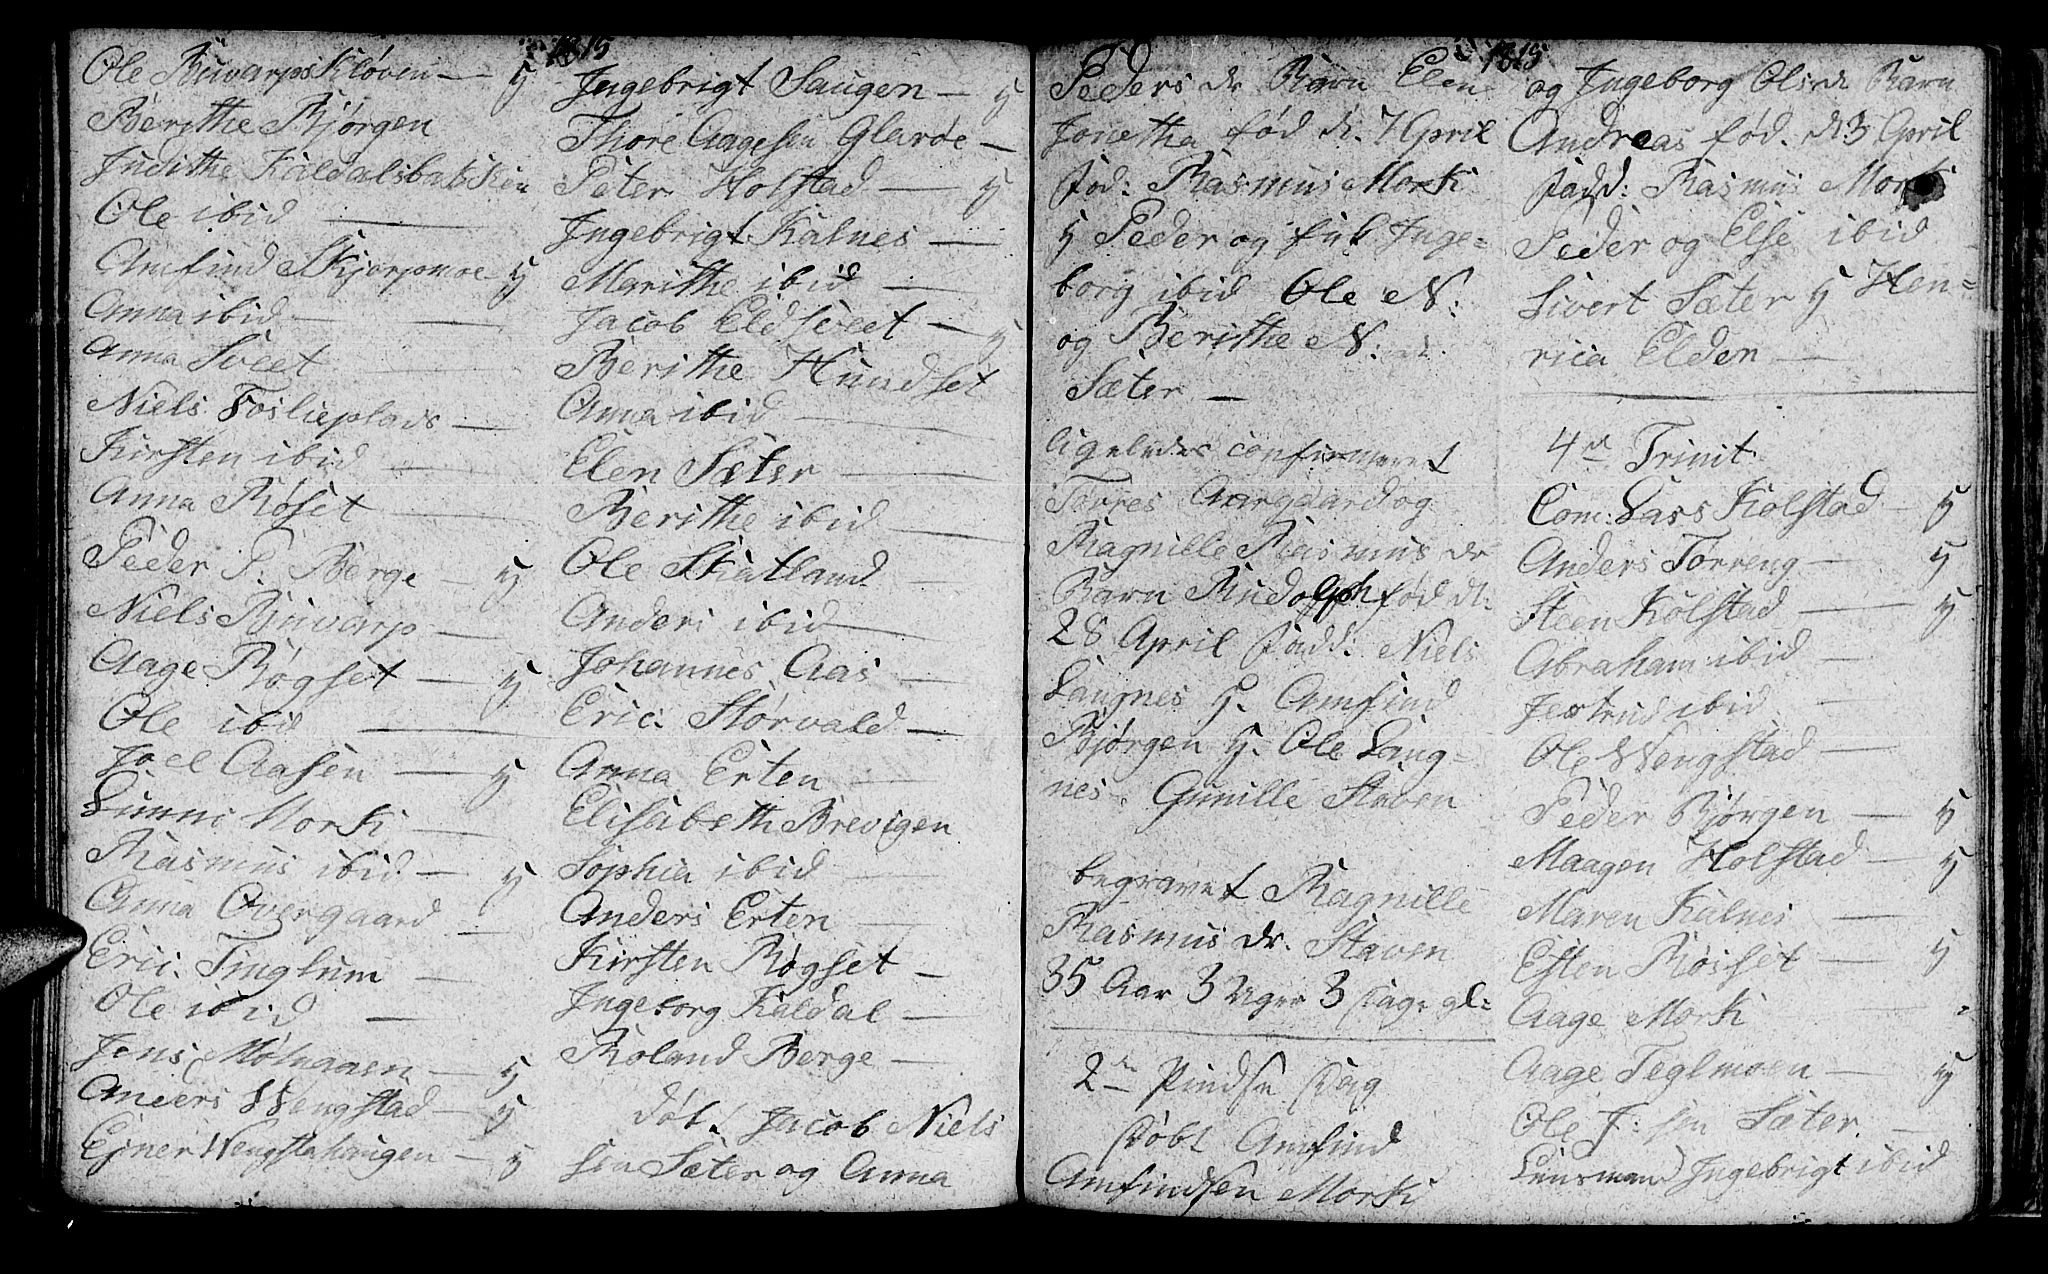 1815
Ole Ruvarps Kløven — y
Berithe Bjørgen
Judithe Kaldalsbakken
Ole ibid —
Amfind Skjerpmoe — y
Anna ibid —
Anna Sveet
Niels Foslieplads —
Kirsten ibid —
Anna Røset —
Peder P. Berge — y
Niels Ruvarp —
Aage Røgset — y
Ole ibid —
Joel Aasen — y
Morki —
Rasmus ibid — y
Anna Overgaard —
Eric Tinglum —
Ole ibid —
Jens Møhaaen — y
Anders Wengstad — y
Ejner Wengstahaugen — y
Ingebrigt Saugen — y
Thore Aagesen Glarøe —
Peter Holstad — y
Ingebrigt Kalnes —
Marithe ibid —
Jacob Eldsveet — y
Berithe Hundset
Anna ibid —
Elen Sæter —
Berithe ibid —
Ole Skatland —
Anders ibid —
Johannes Aas —
Eric Størvald —
Anna Erten —
Elisabeth Brevigen
Sophia ibid —
Anders Erten —
Kirsten Røgset —
Ingeborg Kaldal —
Roland Berge —
døbt Jacob Niels
sen Sæter og Anna
1815
Peders dr Barn Elen
Jonetha fød d. 7 April
Fad: Rasmus Morki
y Peder og Inge=
borg ibid Ole N:
og Berithe N:
Sæter —
ligeledes confirmeret
Torres Aargaard og
Ragnille Rasmus dr
Barn Rudolph fød d:
28 April Fadd: Niels
Langnes y. Amfind
Bjørgen y. Ole Lang=
nes. Gunille Staven
begravet Ragnille
Rasmus dr. Staven
35 Aar 3 Uger 3 Dag. gl:
2den Pindse Dag
Døbt Amfind
Amfindsen Morki
og Ingeborg Olsdr Barn
Andreas fød. d. 3 April
Fadd: Rasmus Morki
Peder og Else ibid
Sivert Sæter y Hen=
rica Elden —
4de Trinit.
Com: Lars Kolstad — y
Anders Tørreng — y
Steen Kolstad — y
Abraham ibid —
Jertrud ibid —
Ole Wengstad —
Peder Bjørgen — y
Maagen Holstad — y
Maren Kalnes —
Esten Røisset — y
Aage Morki
Aage Teglmoen — y
Ole J:sen Sæter —
Ingebrigt ibid